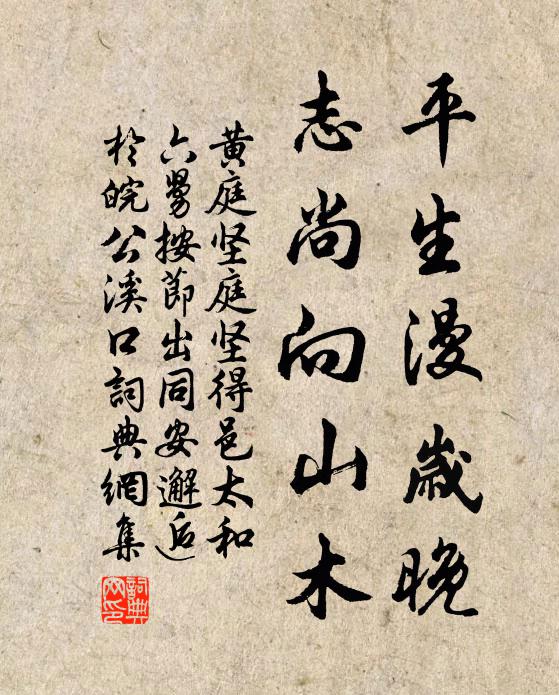 平生漫歲晚
志尚向山木
黄庭坚庭坚得邑太和
六舅按節出同安邂逅
於皖公溪口詞典網集
詞典網印